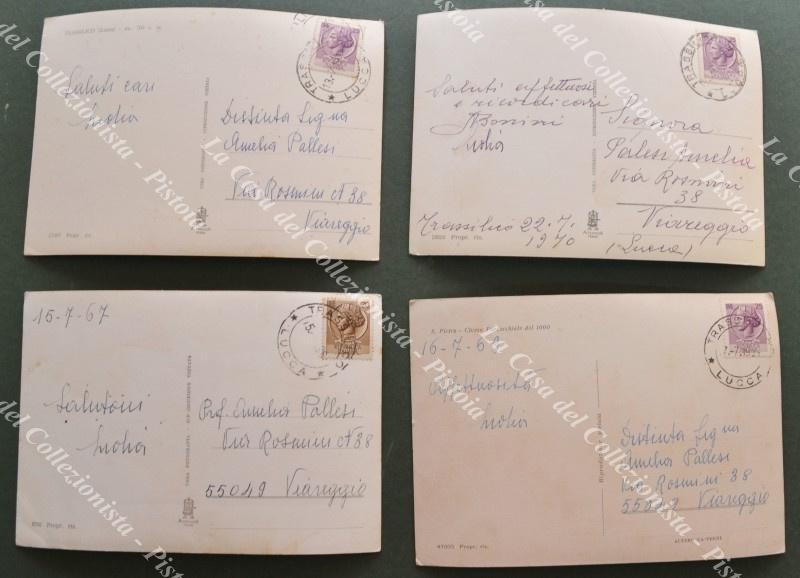 TRASSILICO (Lucca)
Saluti cari
Lidia
Distinta Sig.na
Amelia Pallesi
Via Rosmini N 38
Viareggio
TRAS
LUCCA
Propr. ris.
Saluti affettuosi
e ricordi cari
Lidia
Signora
Palesi Amelia
Via Rosmini
38
Viareggio
(Lucca)
Trassilico 22.7.
1970
TRASSI
Propr. ris.
15-7-67
Salutoni
Lidia
Prof. Amelia Pallesi
Via Rosmini N 38
55049 Viareggio
TRASS
LUCCA
Propr. ris.
S. Pietro - Chiesa Parrocchiale del 1000
16-7-69
Affettuosità
Lidia
Distinta Sig.na
Amelia Pallesi
Via Rosmini 38
55049 Viareggio
TRASS
LUCCA
47003 Propr. ris.
La Casa del Collezionista - Pistoia